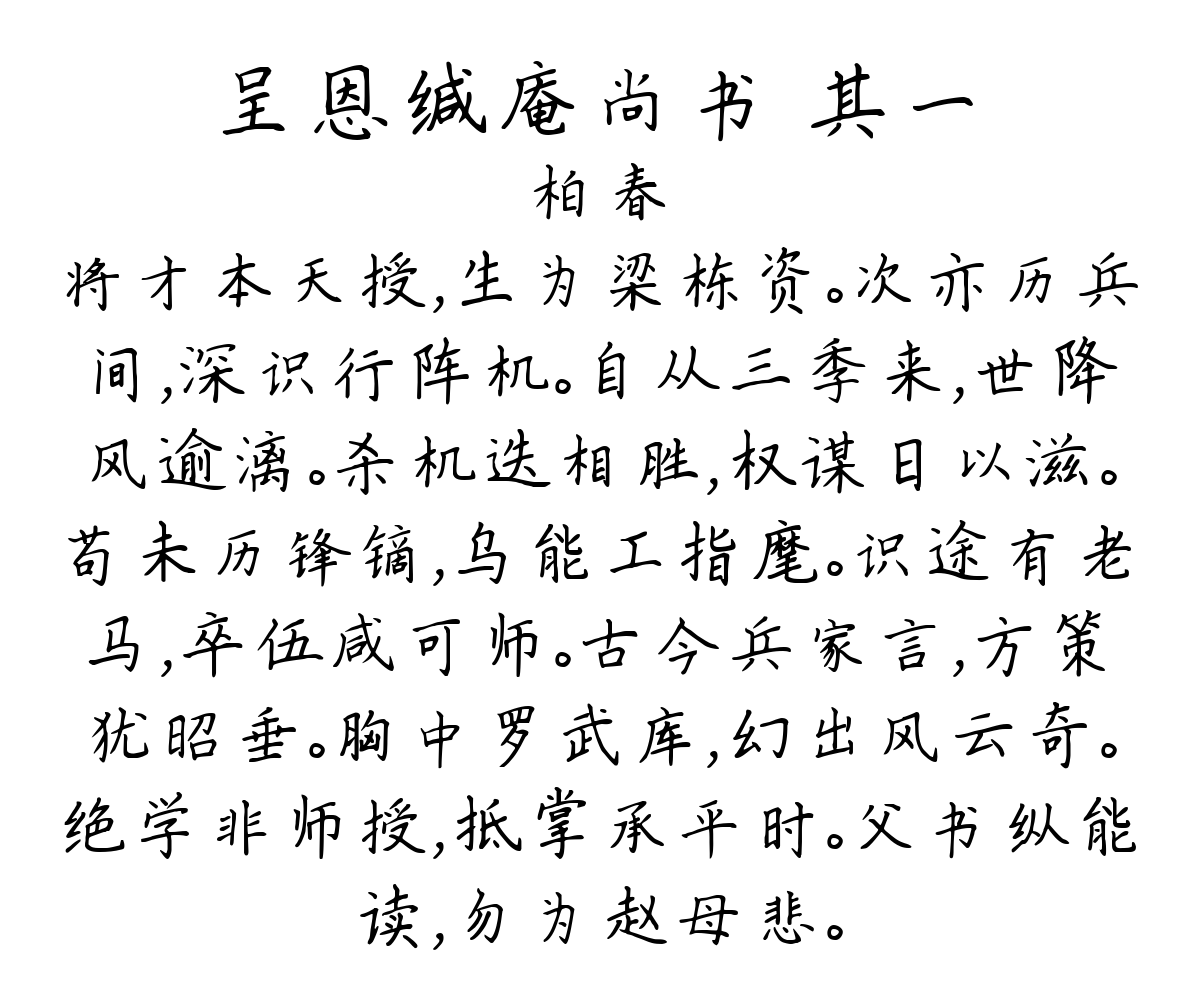 呈恩缄庵尚书 其一
柏春
将才本天授,生为梁栋资。次亦历兵
间,深识行阵机。自从三季来,世降
风逾漓。杀机迭相胜,权谋日以滋。
苟未历锋镝,乌能工指麾。识途有老
马,卒伍咸可师。古今兵家言,方策
犹昭垂。胸中罗武库,幻出风云奇。
绝学非师授,抵掌承平时。父书纵能
读,勿为赵母悲。